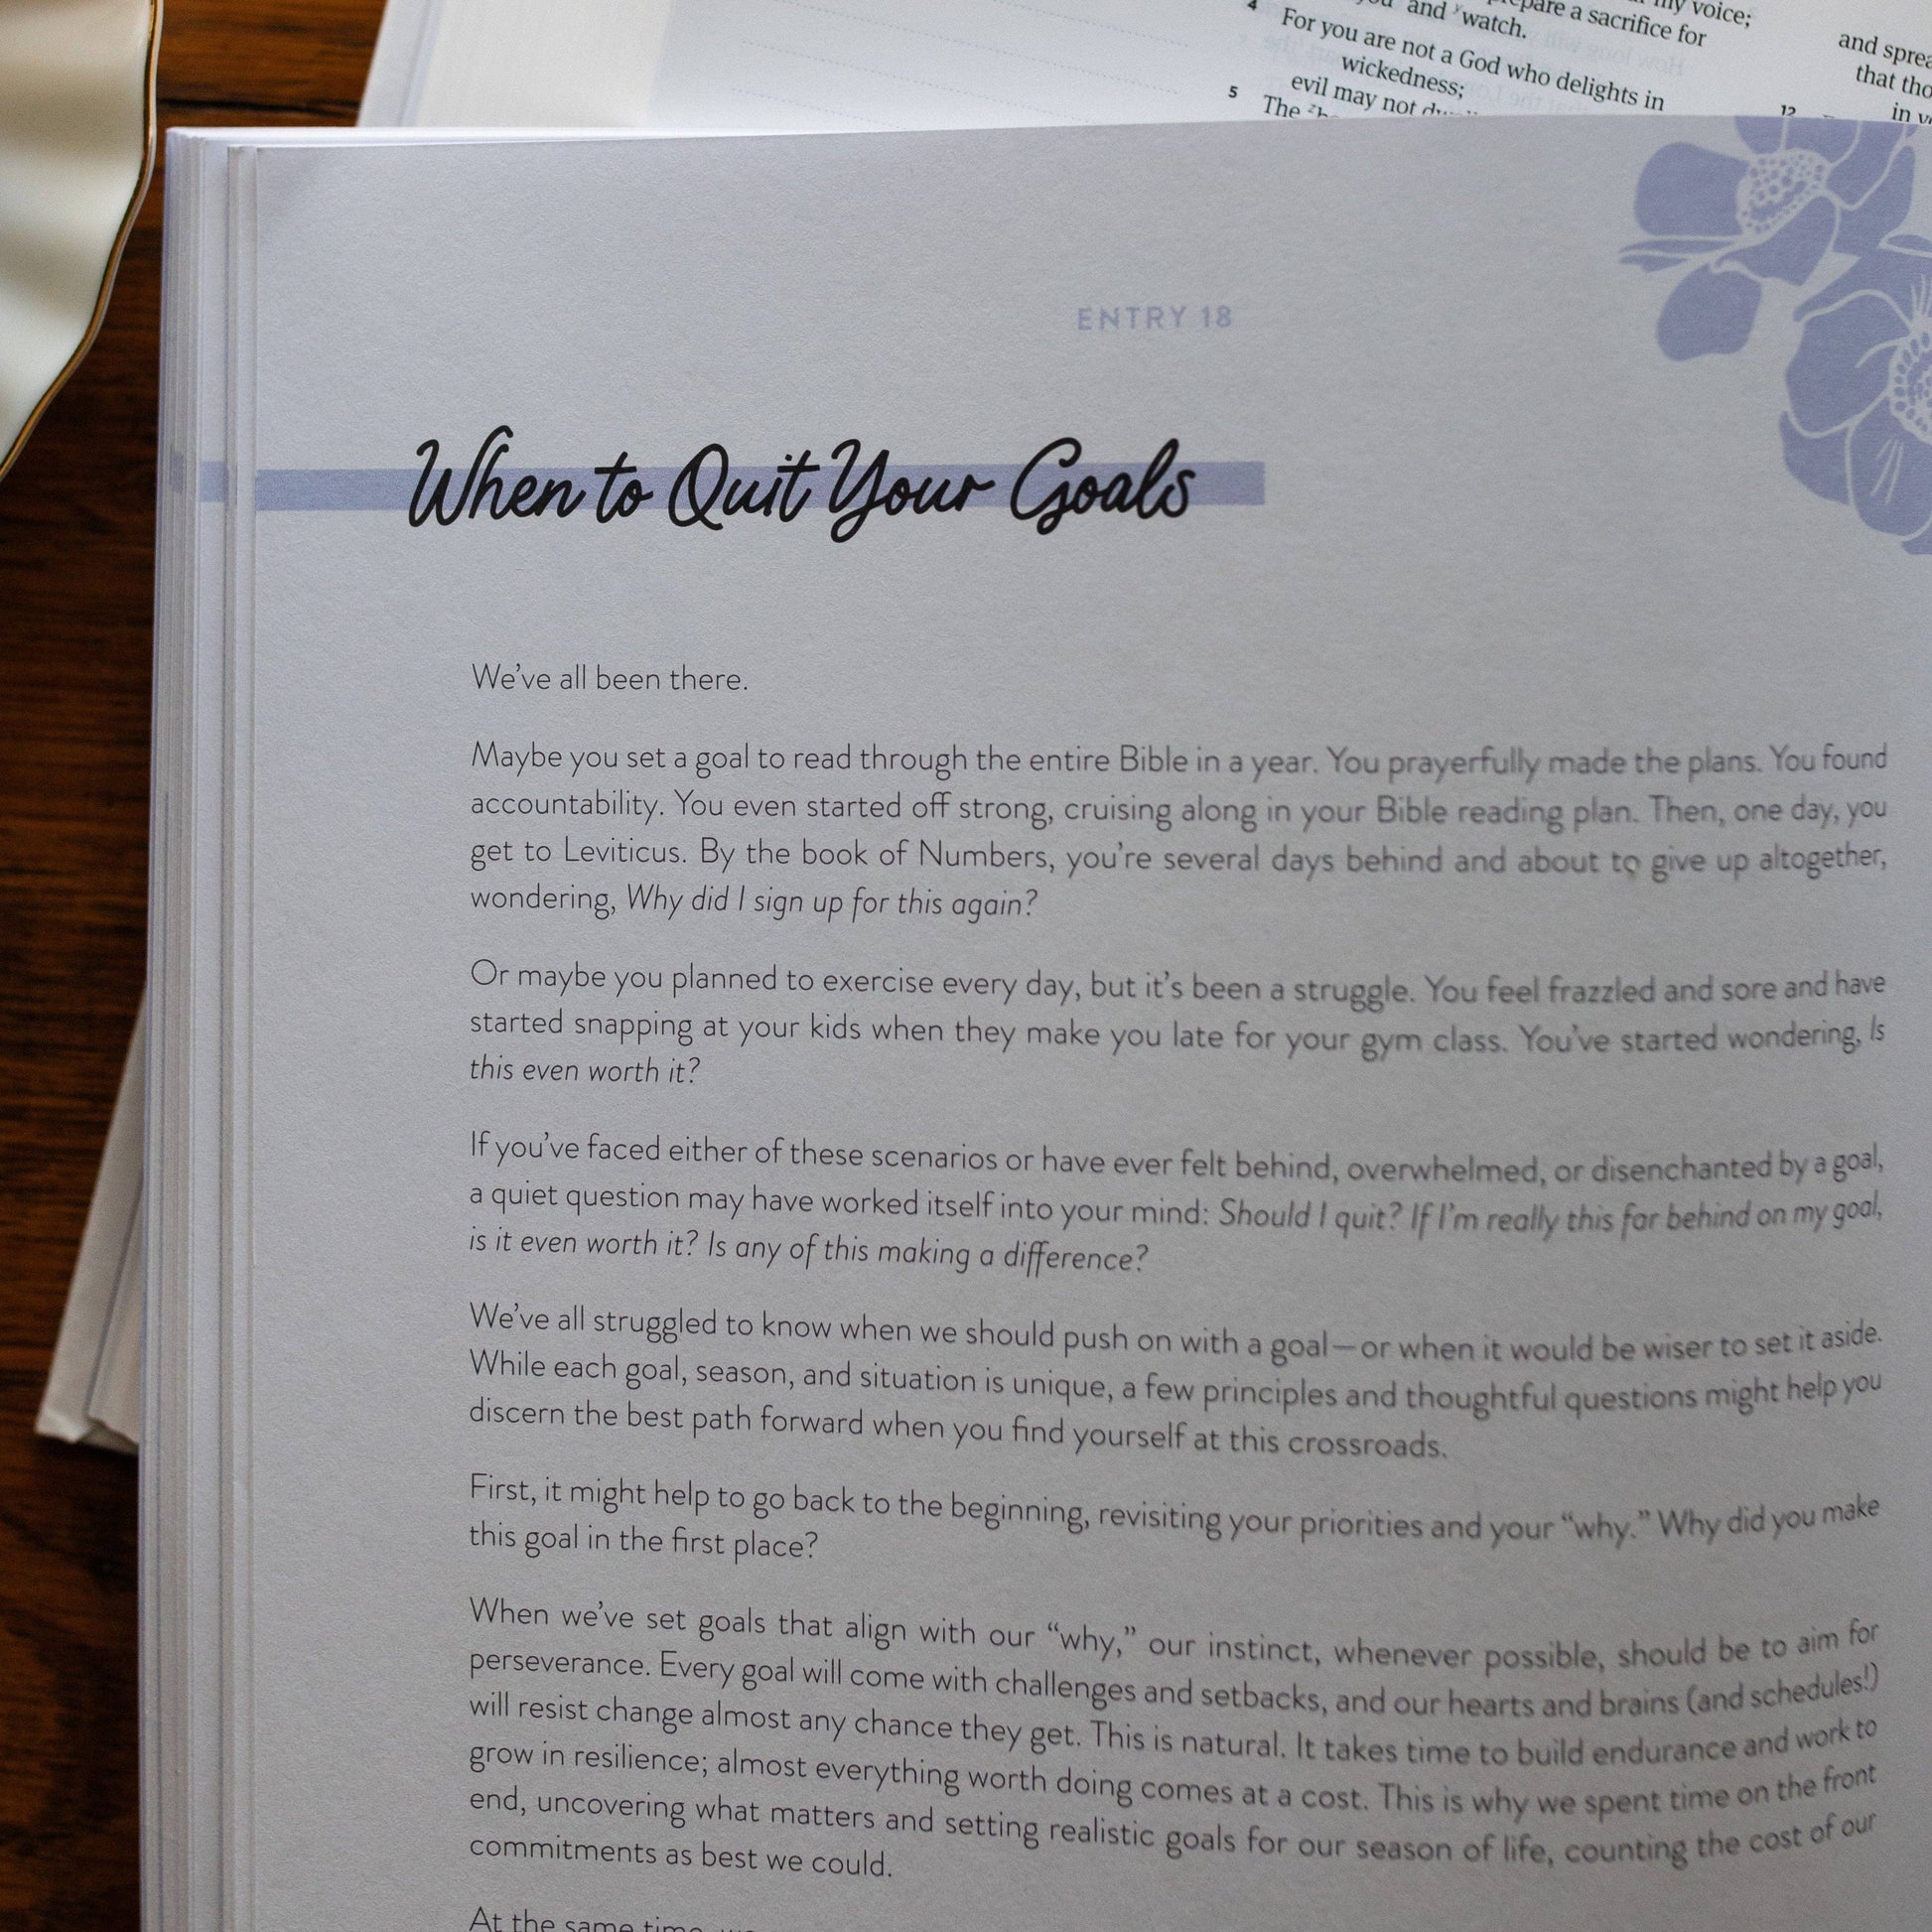 my voice;
and ʸwatch.
prepare a sacrifice for
4 For you are not a God who delights in
wickedness;
evil may not
5 The
and
that
in
12
ENTRY 18
When to Quit Your Goals
We’ve all been there.
Maybe you set a goal to read through the entire Bible in a year. You prayerfully made the plans. You found
accountability. You even started off strong, cruising along in your Bible reading plan. Then, one day, you
get to Leviticus. By the book of Numbers, you’re several days behind and about to give up altogether,
wondering, Why did I sign up for this again?
Or maybe you planned to exercise every day, but it’s been a struggle. You feel frazzled and sore and have
started snapping at your kids when they make you late for your gym class. You’ve started wondering, Is
this even worth it?
If you’ve faced either of these scenarios or have ever felt behind, overwhelmed, or disenchanted by a goal,
a quiet question may have worked itself into your mind: Should I quit? If I’m really this far behind on my goal,
is it even worth it? Is any of this making a difference?
We’ve all struggled to know when we should push on with a goal—or when it would be wiser to set it aside.
While each goal, season, and situation is unique, a few principles and thoughtful questions might help you
discern the best path forward when you find yourself at this crossroads.
First, it might help to go back to the beginning, revisiting your priorities and your “why.” Why did you make
this goal in the first place?
When we’ve set goals that align with our “why,” our instinct, whenever possible, should be to aim for
perseverance. Every goal will come with challenges and setbacks, and our hearts and brains (and schedules!)
will resist change almost any chance they get. This is natural. It takes time to build endurance and work to
grow in resilience; almost everything worth doing comes at a cost. This is why we spent time on the front
end, uncovering what matters and setting realistic goals for our season of life, counting the cost of our
commitments as best we could.
At the same time,